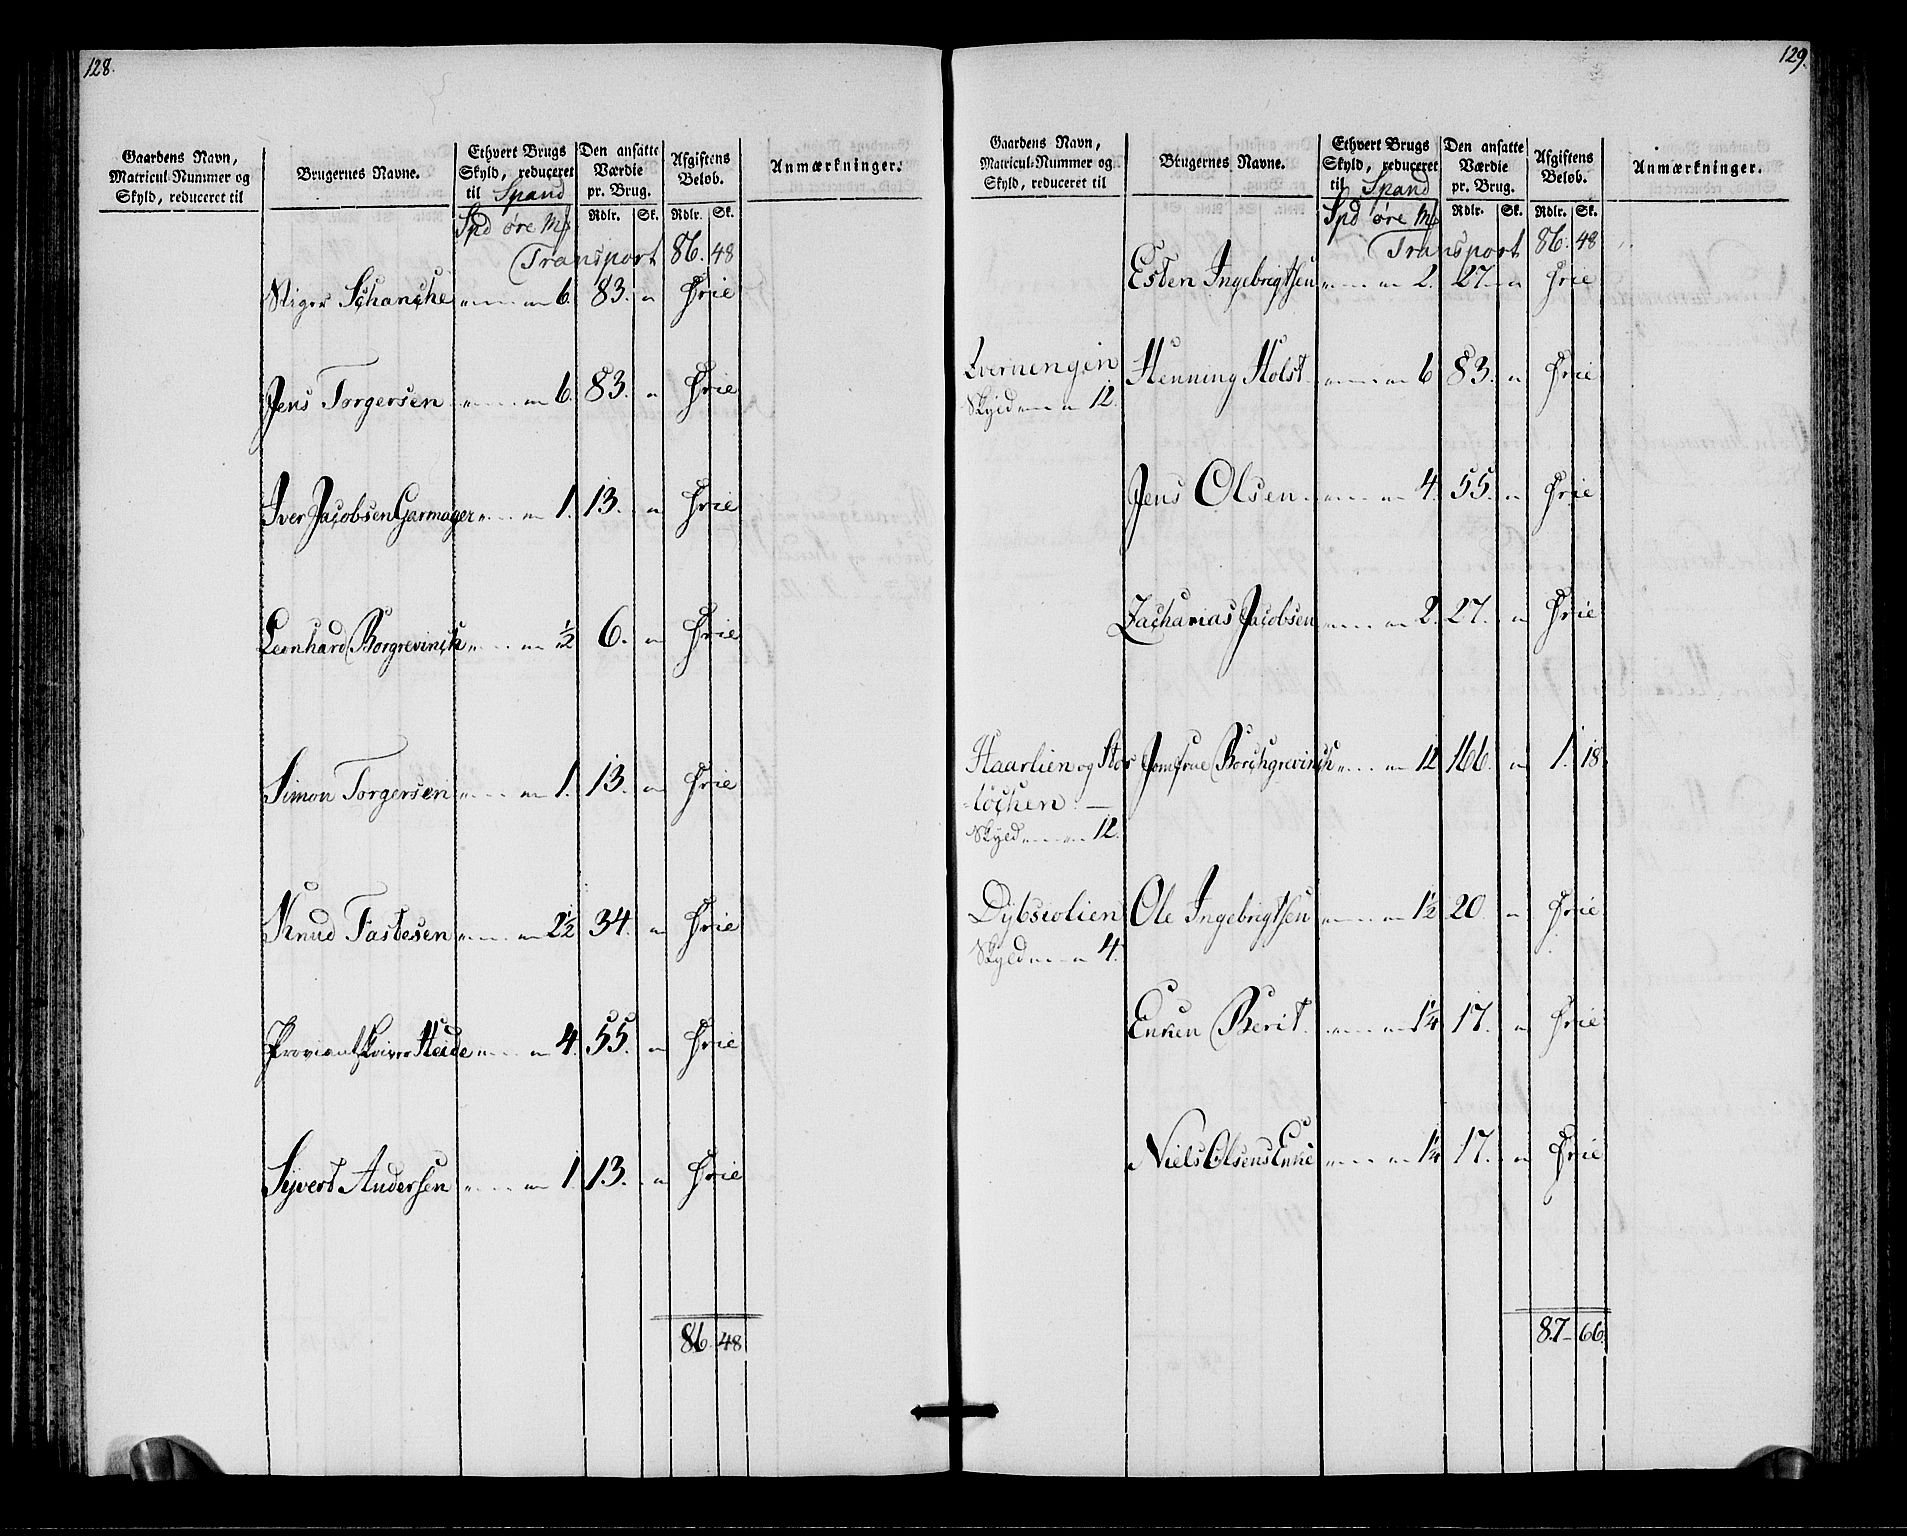 128.
Gaardens Navn, Matricul-Nummer og Skyld, reduceret til | Brugernes Navne. | Ethvert Brugs Skyld, reduceret til Spand | Den ansatte Værdie pr. Brug. | Afgiftens Beløb. | Anmærkninger.
Spd øre Mk | Rdlr. Sk. | Rdlr. Sk.
Transport 86. 48
Schanche „ „ 6. 83. „ Frie
Jens Torgersen „ „ 6. 83. „ Frie
Iver Jacobsen Garmager „ „ 1. 13. „ Frie
Leonhard Borgrevinch „ „ ½ 6. „ Frie
Simon Torgersen „ „ 1. 13. „ Frie
Knud Fastesen „ „ 2½ 34. „ Frie
Proviantskriver Heide „ „ 4. 55. „ Frie
Syvert Andersen „ „ 1. 13. „ Frie
86. 48
129.
Gaardens Navn, Matricul-Nummer og Skyld, reduceret til | Brugernes Navne. | Ethvert Brugs Skyld, reduceret til Spand | Den ansatte Værdie pr. Brug. | Afgiftens Beløb. | Anmærkninger.
Spd øre Mk | Rdlr. Sk. | Rdlr. Sk.
Transport 86. 48
Esten Ingebrigtsen „ „ 2. 27. „ Frie
Henning Holst „ „ 6 83. „ Frie
Skyld „ „ 12.
Jens Olsen „ „ 4. 55. „ Frie
Zacharias Jacobsen „ „ 2. 27. „ Frie
Haarlien og Stor Jomfrue Borchgrevinch „ „ 12 166. „ 1. 18
løchen. —
Skyld „ „ 12.
Dybsiolien Ole Ingebrigtsen „ „ 1½ 20 „ Frie
Skyld „ „ 4.
Enken Berit „ „ 1¼ 17. „ Frie
Niels Olsens Enke „ „ 1¼ 17. „ Frie
87 – 66.